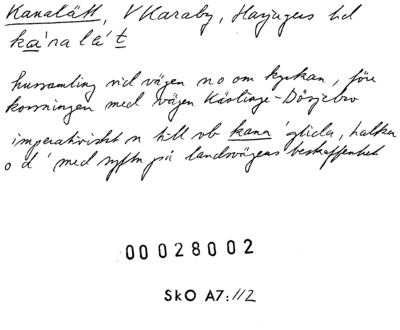 Kanalätt, V Karaby, Harjagers hd
ka´nalä´t
hussamling vid vägen no om kyrkan, före
korsningen med vägen Kävlinge-Dösjebro
imperativiskt n till vb kana 'glida, halka
o d' med syftn på landsvägens beskaffenhet
00028002
SkO A7:112